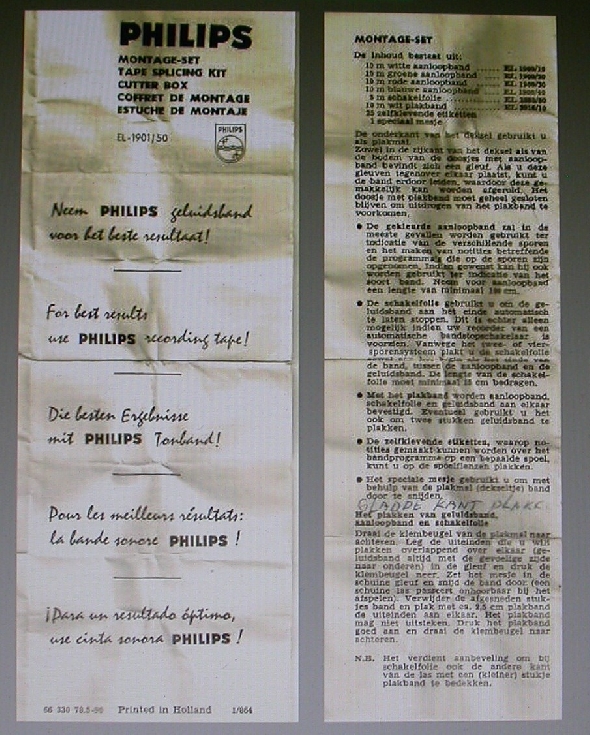 PHILIPS
MONTAGE-SET
TAPE SPLICING KIT
CUTTER BOX
COFFRET DE MONTAGE
ESTUCHE DE MONTAJE
EL-1901/50
PHILIPS
Neem PHILIPS geluidsband
voor het beste resultaat!
For best results
use PHILIPS recording tape!
Die besten Ergebnisse
mit PHILIPS Tonband!
Pour les meilleurs résultats:
la bande sonore PHILIPS !
¡Para un resultado óptimo,
use cinta sonora PHILIPS !
66 330 78.5-90 Printed in Holland 1/864
MONTAGE-SET
De inhoud bestaat uit:
15 m witte aanloopband
15 m groene aanloopband
15 m rode aanloopband
15 m blauwe aanloopband
5 m schakelfolie
10 m wit plakband
25 zelfklevende etiketten
1 speciaal mesje
De onderkant van het deksel gebruikt u
als plakmal.
Zowel in de zijkant van het deksel als van
de bodem van de doosjes met aanloop-
band bevindt zich een gleuf. Als u deze
gleuven tegenover elkaar plaatst, kunt u
de band erdoor leiden, waardoor deze ge-
makkelijk kan worden afgerold. Het
doosje met plakband moet geheel gesloten
blijven om uitdrogen van het plakband te
voorkomen.
● De gekleurde aanloopband zal in de
meeste gevallen worden gebruikt ter
indicatie van de verschillende sporen
en het maken van notities betreffende
de programma's die op de sporen zijn
opgenomen. Indien gewenst kan hij ook
worden gebruikt ter indicatie van het
soort band. Neem voor aanloopband
een lengte van minimaal cm.
● De schakelfolie gebruikt u om de ge-
luidsband aan het einde automatisch
te laten stoppen. Dit is echter alleen
mogelijk indien uw recorder van een
automatische bandstopschakelaar is
voorzien. Vanwege het twee- of vier-
sporensysteem plakt u de schakelfolie
de band, tussen de aanloopband en de
geluidsband. De lengte van de schakel-
folie moet minimaal 15 cm bedragen.
● Met het plakband worden aanloopband,
schakelfolie en geluidsband aan elkaar
bevestigd. Eventueel gebruikt u het
ook om twee stukken geluidsband te
plakken.
● De zelfklevende etiketten, waarop no-
tities gemaakt kunnen worden over het
bandprogramma op een bepaalde spoel,
kunt u op de spoelflenzen plakken.
● Het speciale mesje gebruikt u om met
behulp van de plakmal (dekseltje) band
door te snijden.
GLADDE KANT PLAKK.
Het plakken van geluidsband,
aanloopband en schakelfolie
Draai de klembeugel van de plakmal naar
achteren. Leg de uiteinden die u wilt
plakken overlappend over elkaar (ge-
luidsband altijd met de gevoelige zijde
naar onderen) in de gleuf en druk de
klembeugel neer. Zet het mesje in de
schuine gleuf en snijd de band door (een
schuine las passeert onhoorbaar bij het
afspelen). Verwijder de afgesneden stuk-
jes band en plak met ca. 2.5 cm plakband
de uiteinden aan elkaar. Het plakband
mag niet uitsteken. Druk het plakband
goed aan en draai de klembeugel naar
achteren.
N.B. Het verdient aanbeveling om bij
schakelfolie ook de andere kant
van de las met een (kleiner) stukje
plakband te bedekken.